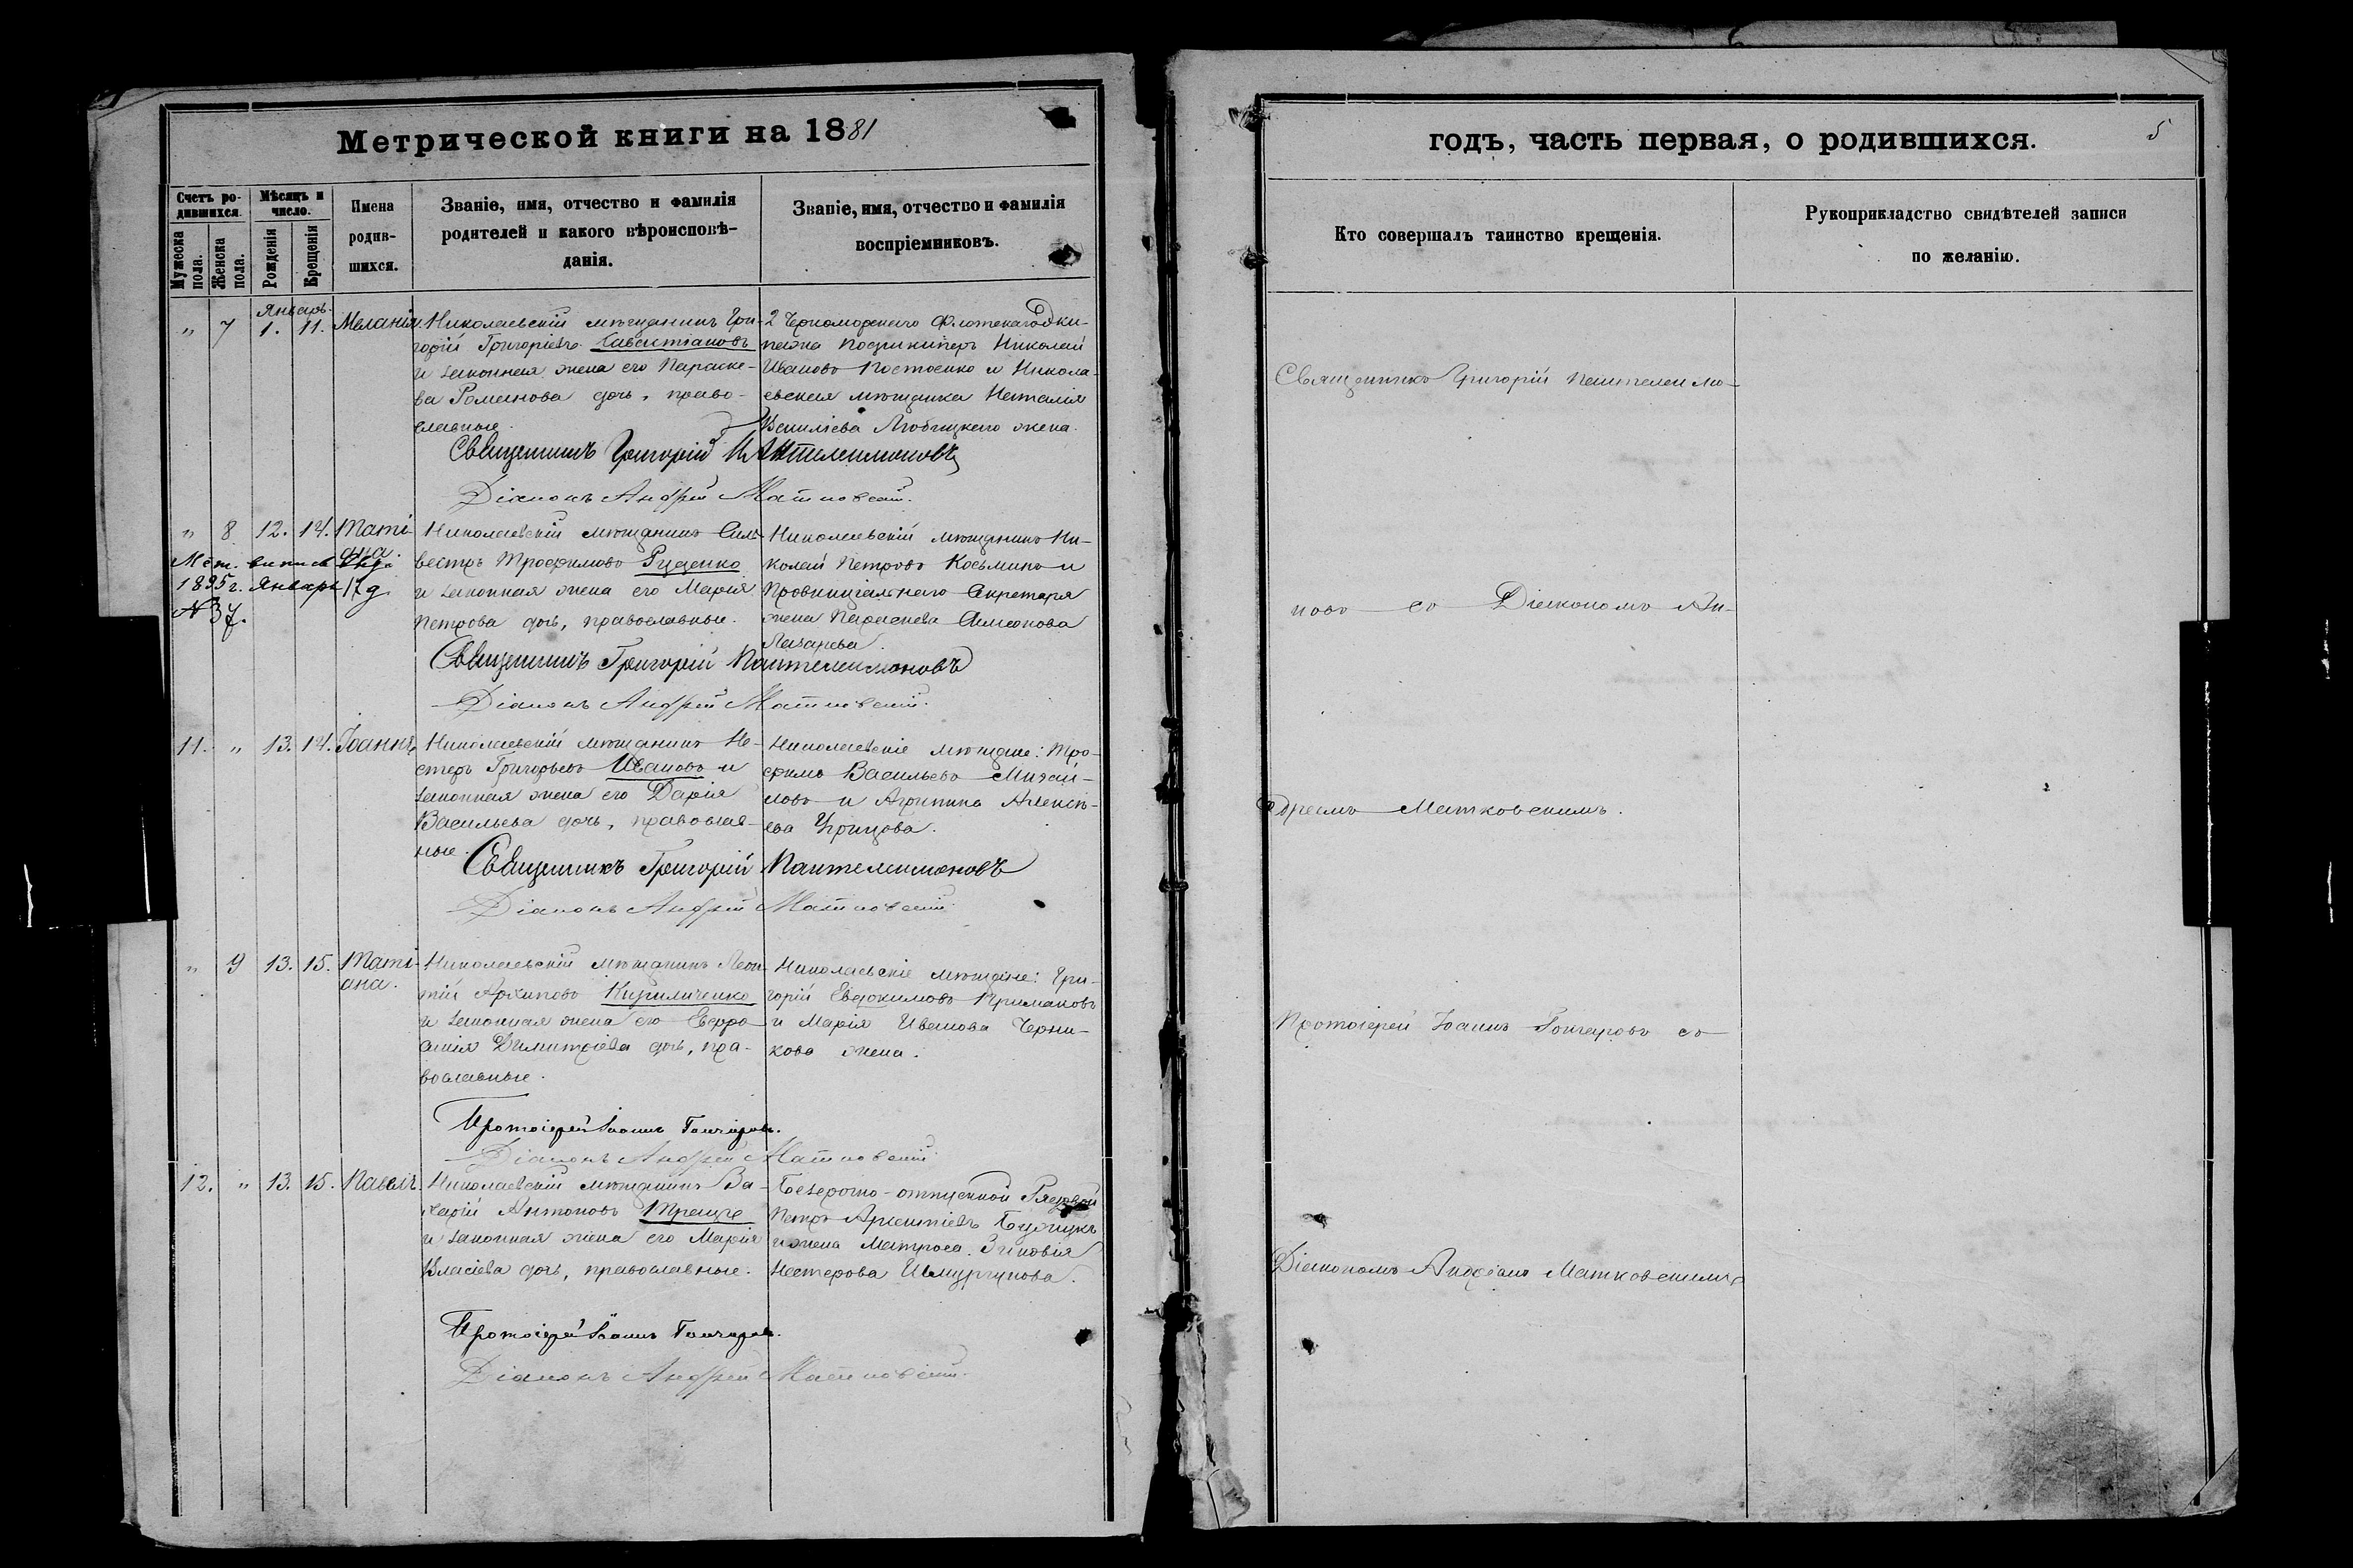 Метрической книги на 1881
годъ, часть первая, о родившихся.
5
Счетъ ро-
дившихся.
Мужеска пола.
Женска пола.
Мѣсяцъ и
число.
Рожденія
Крещенія
Имена
родив-
шихся.
Званіе, имя, отчество и фамилія
родителей и какого вѣроисповѣ-
данія.
Званіе, имя, отчество и фамилія
воспріемниковъ.
Кто совершалъ таинство крещенія.
Рукоприкладство свидѣтелей записи
по желанію.
Январь.
„ 7 1. 11. Меланія.
Николаевскій мѣщанинъ Гри-
горій Григоріевъ Савастіановъ
и законная жена его Параске-
ва Романова дочь, право-
славные.
2 Черноморскаго Флотскаго Эки-
пажа Подшкиперъ Николай
Ивановъ Костоенко и Никола-
евская мѣщанка Наталія
Василіева Любицкаго жена.
Священникъ Григорій Пантелеимоновъ
Діаконъ Андрей Матковскій.
„ 8 12. 14. Таті-
ана.
Мет. выпись
1895 г. Января 17 д.
№ 37.
Николаевскій мѣщанинъ Силь-
вестръ Трофимовъ Руденко
и законная жена его Марія
Петрова дочь, православные.
Николаевскій мѣщанинъ Ни-
колай Петровъ Косьминъ и
Провинціальнаго Секретаря
жена Параскева Симеонова
Лазарева.
Священникъ Григорій Пантелеимоновъ
Діаконъ Андрей Матковскій.
11. „ 13. 14. Іоаннъ.
Николаевскій мѣщанинъ Не-
стеръ Григорьевъ Ивановъ и
законная жена его Дарія
Васильева дочь, православ-
ные.
Николаевскіе мѣщане: Тро-
фимъ Васильевъ Михай-
ловъ и Агрипина Алексѣ-
ева Урицова.
Священникъ Григорій Пантелеимоновъ
Діаконъ Андрей Матковскій.
„ 9 13. 15. Таті-
ана.
Николаевскій мѣщанинъ Леон-
тій Архиповъ Кириличенко
и законная жена его Евфро-
синія Димитріева дочь, пра-
вославные.
Николаевскіе мѣщане: Гри-
горій Евдокимовъ Кримановъ
и Марія Иванова Черни-
кова жена.
Протоіерей Іоаннъ Гончаровъ.
Діаконъ Андрей Матковскій.
12. „ 13. 15. Павелъ.
Николаевскій мѣщанинъ За-
харій Антоновъ Трецъ
и законная жена его Марія
Власіева дочь, православные.
Безсрочно-отпускной Рядовой
Петръ Арсентіевъ
и жена Матроса Зиновія
Нестерова
Протоіерей Іоаннъ Гончаровъ.
Діаконъ Андрей Матковскій.
Священникъ Григорій Пантелеимо-
новъ со Діакономъ Ан-
дреемъ Матковскимъ.
Протоіерей Іоаннъ Гончаровъ со
Діакономъ Андреемъ Матковскимъ